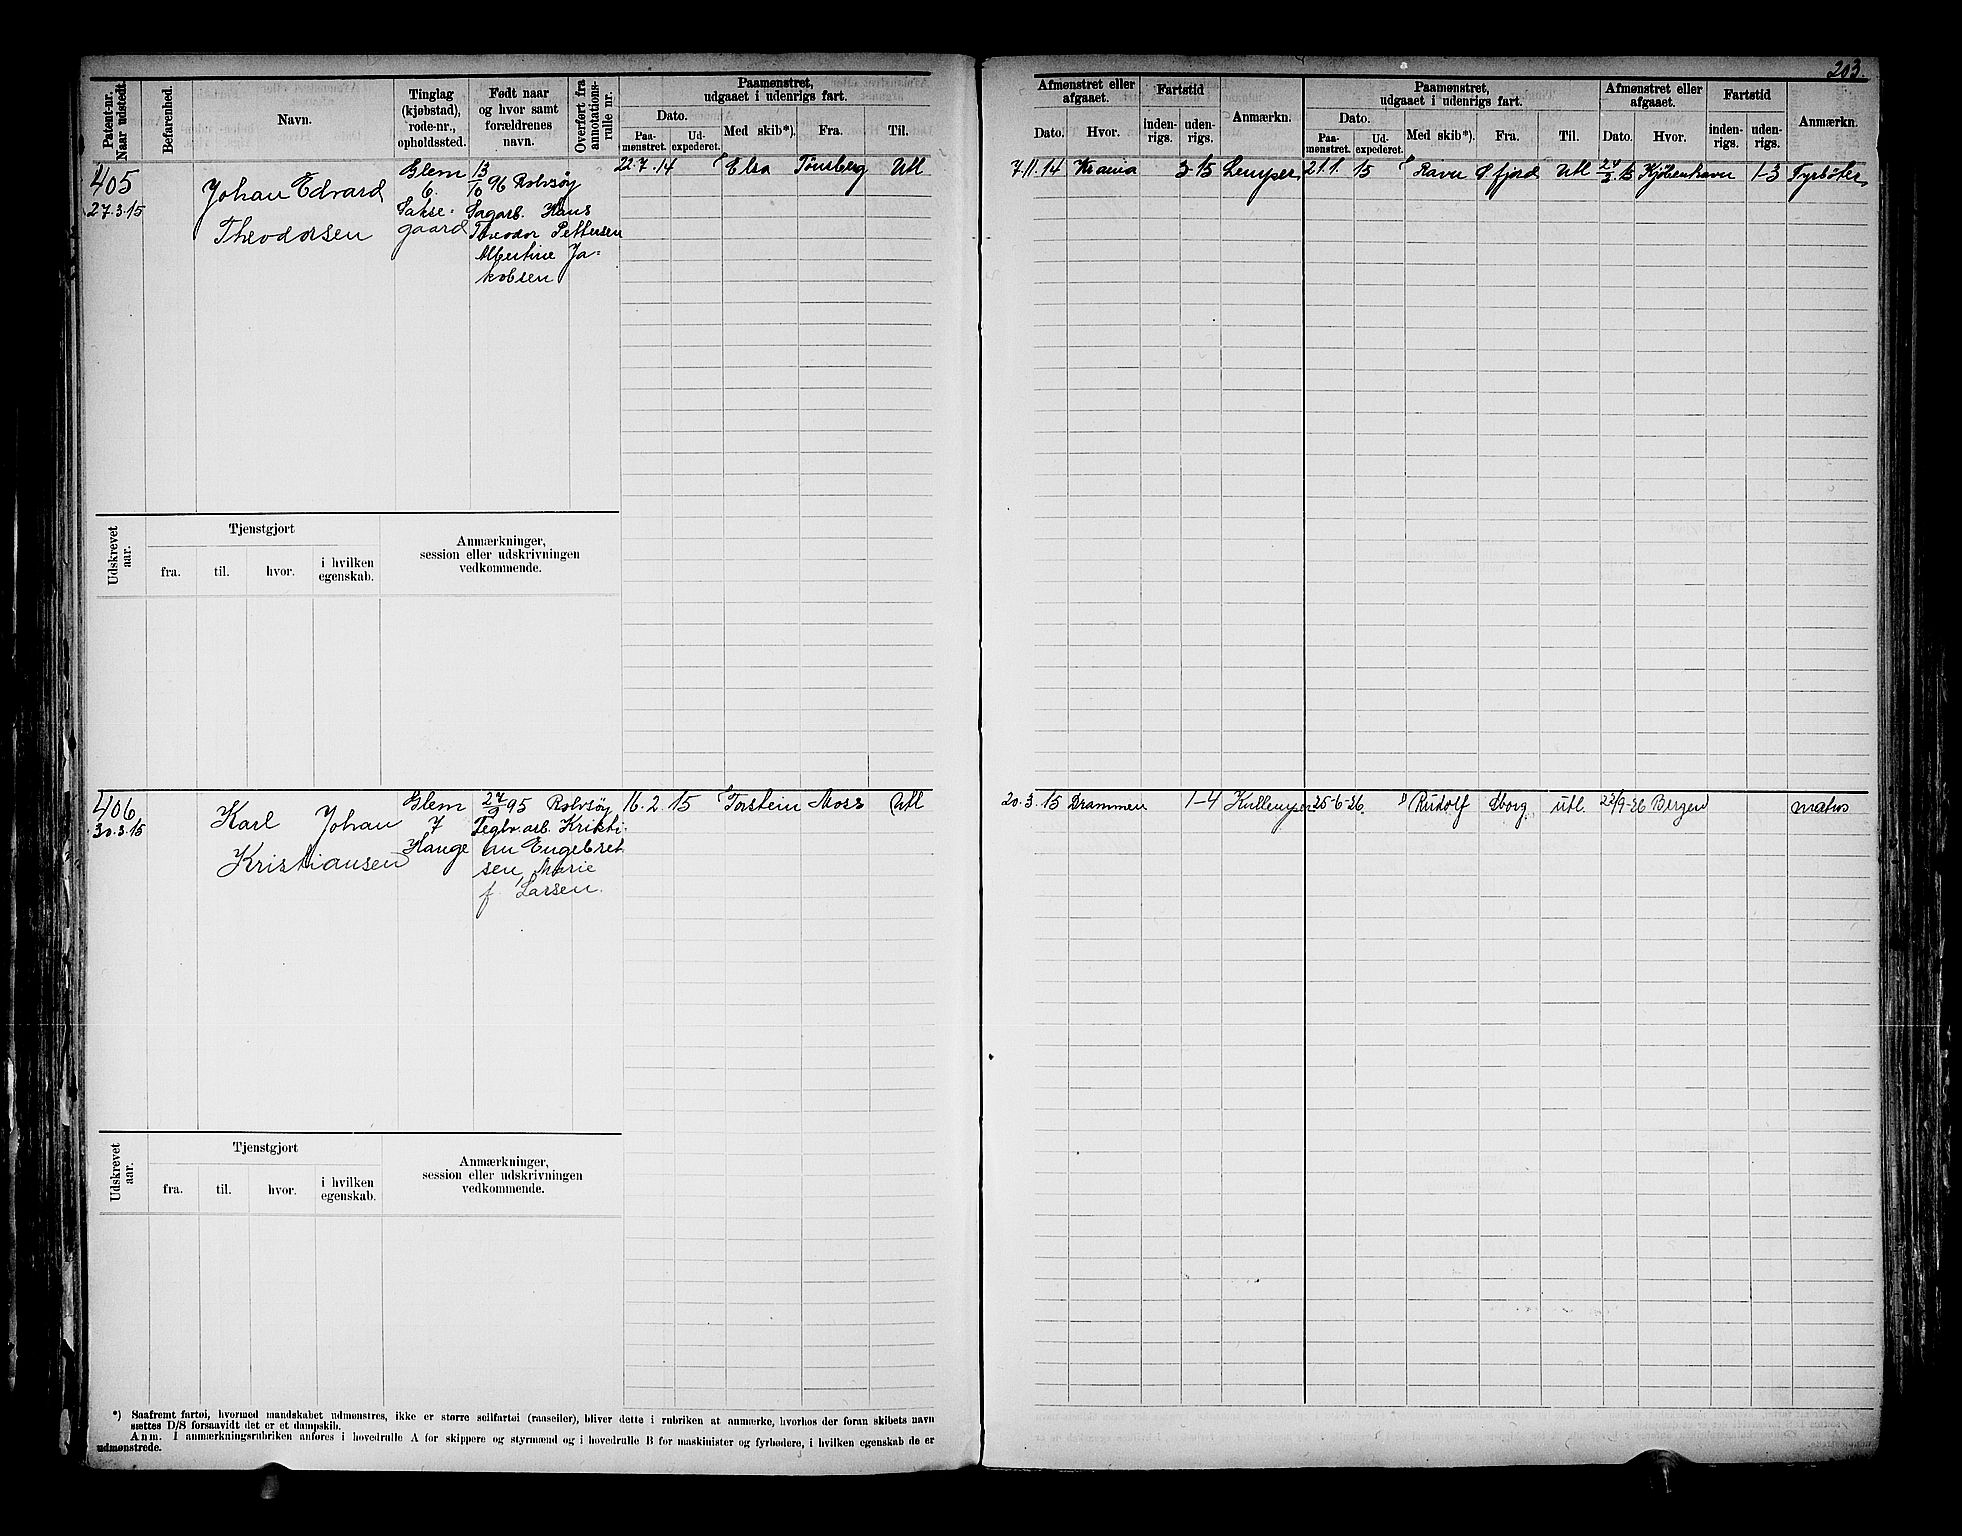 203.
Patent-nr. Naar udstedt.
Befarenhed.
Navn.
Tinglag (kjøbstad), rode-nr., opholdssted.
Født naar og hvor samt forældrenes navn.
Overført fra annotations-rulle nr.
Paamønstret, udgaaet i udenrigs fart.
Dato.
Paa-mønstret.
Ud-expederet.
Med skib*).
Fra.
Til.
Afmønstret eller afgaaet.
Dato.
Hvor.
Fartstid
inden-rigs.
uden-rigs.
Anmærkn.
Paamønstret, udgaaet i udenrigs fart.
Dato.
Paa-mønstret.
Ud-expederet.
Med skib*).
Fra.
Til.
Afmønstret eller afgaaet.
Dato.
Hvor.
Fartstid
inden-rigs.
uden-rigs.
Anmærkn.
405
27.3.15
Johan Edvard
Theodorsen
Glem
6.
Sakse-
gaard
13/10 96 Rolvsøy
Sagarb. Hans
Theodor Pettersen
Albertine Ja-
kobsen
22.7.14 Elsa Tønsberg Utl
7.11.14 Krania 3-15 Lemper
21.1.15 Ravn fjord Utl Kjøbenhavn 1-3 Fyrbøter
Udskrevet aar.
Tjenstgjort
fra.
til.
hvor.
i hvilken egenskab.
Anmærkninger, session eller udskrivningen vedkommende.
406
30.3.15
Karl Johan
Kristiansen
Glem
7
Hauge
27/9 95 Rolvsøy
Teglv.arb. Kristi-
an Engebret
sen, Marie
f. Larsen.
16.2.15 Torstein Moss Utl
20.3.15 Drammen 1-4 Kullemper
25-6-26. Rudolf Sborg utl. 22/9-26 Bergen matros
Udskrevet aar.
Tjenstgjort
fra.
til.
hvor.
i hvilken egenskab.
Anmærkninger, session eller udskrivningen vedkommende.
*) Saafremt fartøi, hvormed mandskabet udmønstres, ikke er større seilfartøi (raaseiler), bliver dette i rubriken at anmærke, hvorhos der foran skibets navn
sættes D/S forsaavidt det er et dampskib.
Anm. I anmærkningsrubriken anføres i hovedrulle A for skippere og styrmænd og i hovedrulle B for maskinister og fyrbødere, i hvilken egenskab de er
udmønstrede.